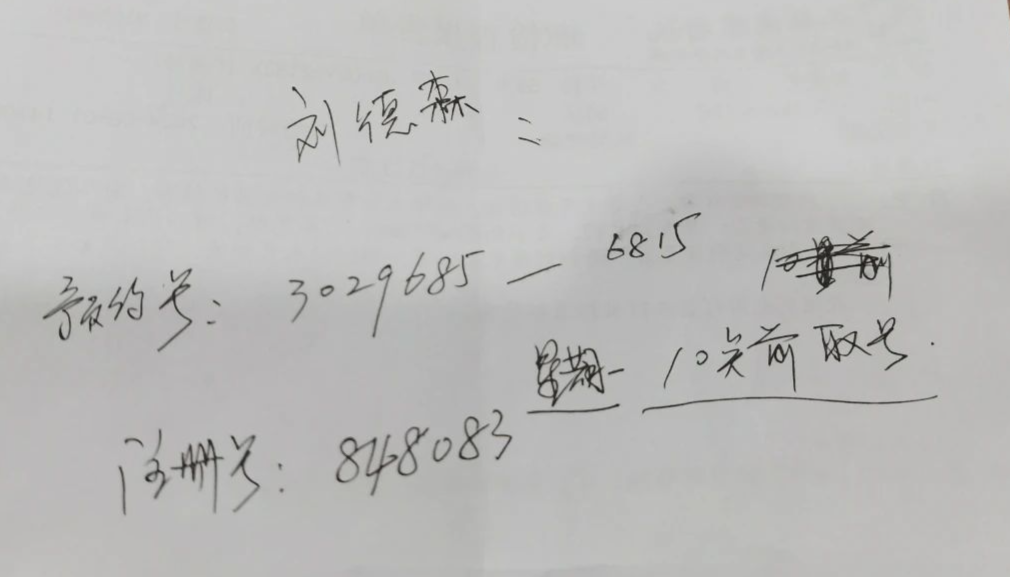 刘德森:
预约号: 3029685 — 6815
星期一 10点前取号.
注册号: 848083